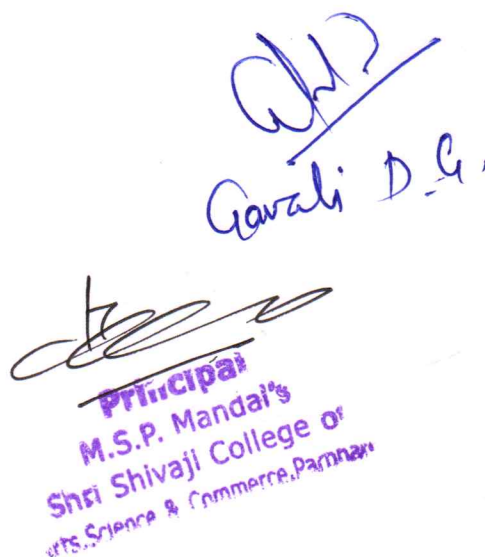 Gavali D.G.
Principal
M.S.P. Mandal's
Shri Shivaji College of
Arts, Science & Commerce, Parbhani